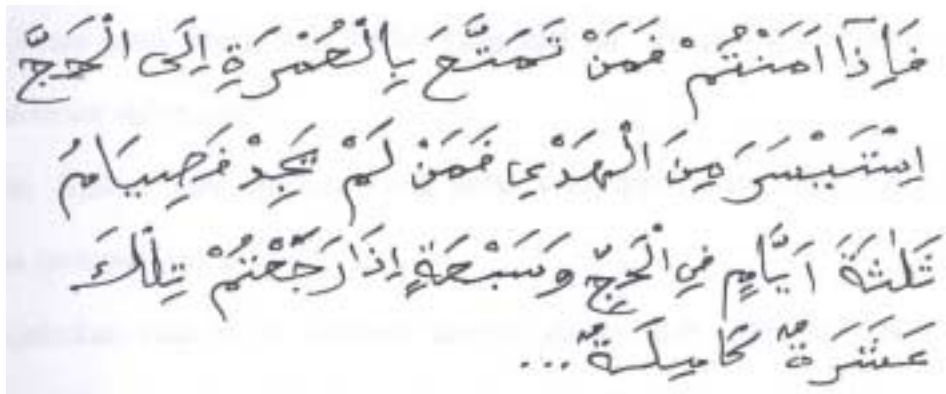 فَإِذَآ اَمَنْتُمْ فَمَنْ تَمَتَّعَ بِالْعُمْرَةِ اِلَى الْحَجِّ
اِسْتَيْسَرَ مِنَ الْهَدْيِ فَمَنْ لَمْ يَجِدْ فَصِيَامُ
ثَلٰثَةَ اَيَّامٍ فِى الْحَجِّ وَسَبْعَةٍ اِذَا رَجَعْتُمْ تِلْكَ
عَشَرَةٌ كَامِلَةٌ ...